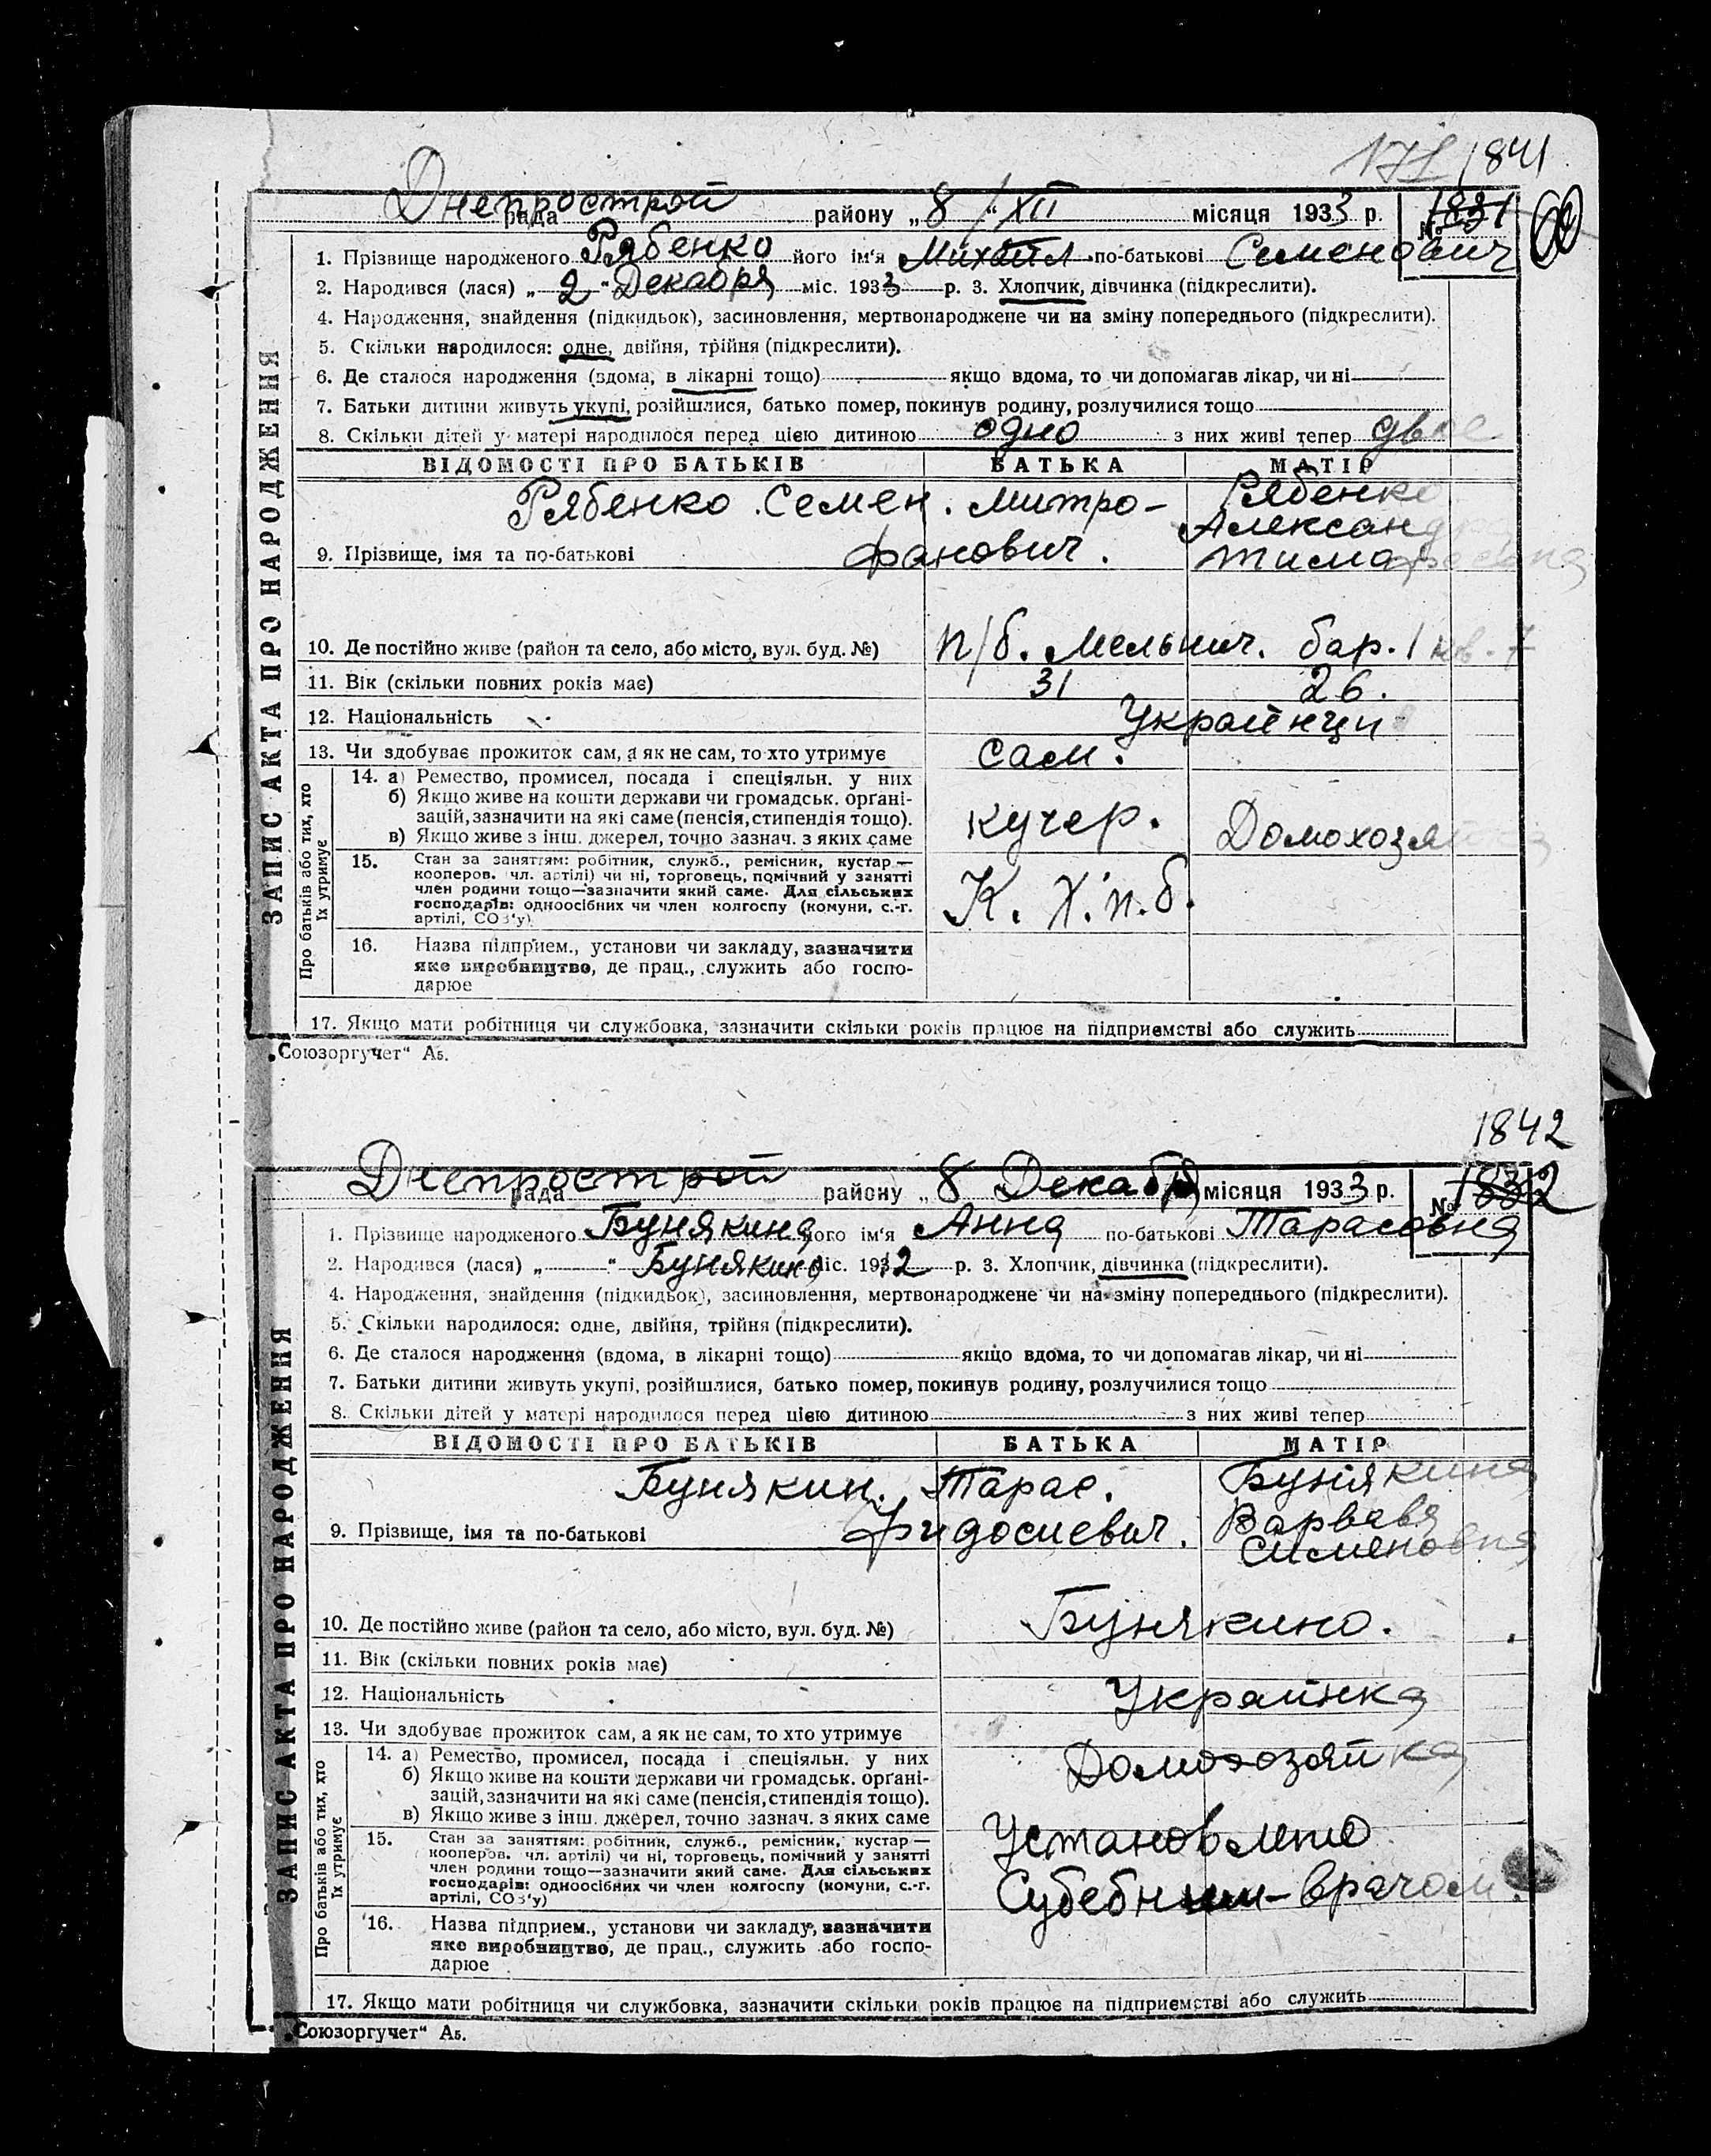 1841
Днепрострой
рада району „ 8 “ / XII місяця 1933 р. № 1831
1. Прізвище народженого Рябенко його ім‘я Михаил по-батькові Семенович
2. Народився (лася) „ 2 “ Декабря міс. 1933 р. 3. Хлопчик, дівчинка (підкреслити).
4. Народження, знайдення (підкидьок), засиновлення, мертвонароджене чи на зміну попереднього (підкреслити).
5. Скільки народилося: одне, двійня, трійня (підкреслити).
6. Де сталося народження (вдома, в лікарні тощо) якщо вдома, то чи допомагав лікар, чи ні
7. Батьки дитини живуть укупі, розійшлися, батько помер, покинув родину, розлучилися тощо
8. Скільки дітей у матері народилося перед цією дитиною одно з них живі тепер двое
ВІДОМОСТІ ПРО БАТЬКІВ БАТЬКА МАТІР
Рябенко Семен Митро- Рябенко
Александра
9. Прізвище, імя та по-батькові фанович.
10. Де постійно живе (район та село, або місто, вул. буд. №) п/б. Мельнич. бар. 1 кв. 7
11. Вік (скільки повних років має) 31 26.
12. Національність Украйнци
13. Чи здобуває прожиток сам, а як не сам, то хто утримує сам.
14. а) Ремество, промисел, посада і спеціяльн. у них
б) Якщо живе на кошти держави чи громадськ. орґані-
зацій, зазначити на які саме (пенсія, стипендія тощо).
кучер. Домохозяйка
в) Якщо живе з інш. джерел, точно зазнач. з яких саме
15. Стан за заняттям: робітник, служб., ремісник, кустар—
кооперов. чл. артілі) чи ні, торговець, помічний у занятті
член родини тощо—зазначити який саме. Для сільських
господарів: одноосібних чи член колгоспу (комуни, с.-г.
артілі, СОЗ‘у)
К. Х. п. б.
16. Назва підприем., установи чи закладу, зазначити
яке виробництво, де прац., служить або госпо-
дарює
17. Якщо мати робітниця чи службовка, зазначити скільки років працює на підприемстві або служить
ЗАПИС АКТА ПРО НАРОДЖЕННЯ
Про батьків або тих, хто
їх утримує
„Союзоргучет“ Аб.
1842
Днепрострой
рада району „ 8 Декабря місяця 1933 р. № 1832
1. Прізвище народженого Бунякина його ім‘я Анна по-батькові Тарасовна
2. Народився (лася) „ “ Бунякино міс. 1912 р. 3. Хлопчик, дівчинка (підкреслити).
4. Народження, знайдення (підкидьок), засиновлення, мертвонароджене чи на зміну попереднього (підкреслити).
5. Скільки народилося: одне, двійня, трійня (підкреслити).
6. Де сталося народження (вдома, в лікарні тощо) якщо вдома, то чи допомагав лікар, чи ні
7. Батьки дитини живуть укупі, розійшлися, батько помер, покинув родину, розлучилися тощо
8. Скільки дітей у матері народилося перед цією дитиною з них живі тепер
ВІДОМОСТІ ПРО БАТЬКІВ БАТЬКА МАТІР
Бунякин. Тарас. Бунякина
9. Прізвище, імя та по-батькові Фидосиевич. Варвавя
Сименовня
10. Де постійно живе (район та село, або місто, вул. буд. №) Бунякино.
11. Вік (скільки повних років має)
12. Національність Украинка
13. Чи здобуває прожиток сам, а як не сам, то хто утримує
14. а) Ремество, промисел, посада і спеціяльн. у них Домохозяйка
б) Якщо живе на кошти держави чи громадськ. орґані-
зацій, зазначити на які саме (пенсія, стипендія тощо).
в) Якщо живе з інш. джерел, точно зазнач. з яких саме
15. Стан за заняттям: робітник, служб., ремісник, кустар—
кооперов. чл. артілі) чи ні, торговець, помічний у занятті
член родини тощо—зазначити який саме. Для сільських
господарів: одноосібних чи член колгоспу (комуни, с.-г.
артілі, СОЗ‘у)
Установлено
Субебним-врачом.
16. Назва підприем., установи чи закладу, зазначити
яке виробництво, де прац., служить або госпо-
дарює
17. Якщо мати робітниця чи службовка, зазначити скільки років працює на підприемстві або служить
ЗАПИС АКТА ПРО НАРОДЖЕННЯ
Про батьків або тих, хто
їх утримує
„Союзоргучет“ Аб.